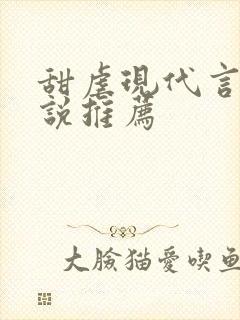 甜虐現代言
說推薦
大臉猫愛喫魚